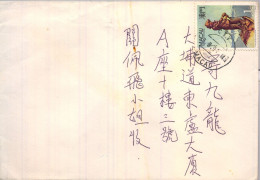 香港九龍
大埔道東盧大廈
A座十樓三號
關佩飛小姐收